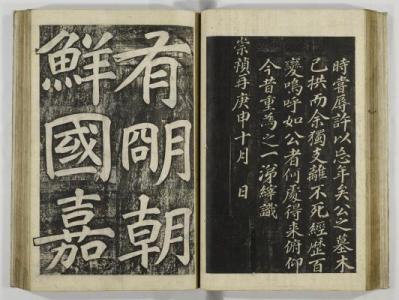 時嘗辱許以忘年矣公之墓木
已拱而余獨支離不死經歷百
變嗚呼如公者何處得来俯仰
今昔重為之一涕縡識
崇禎再庚申十月 日
有朙朝
鮮國嘉